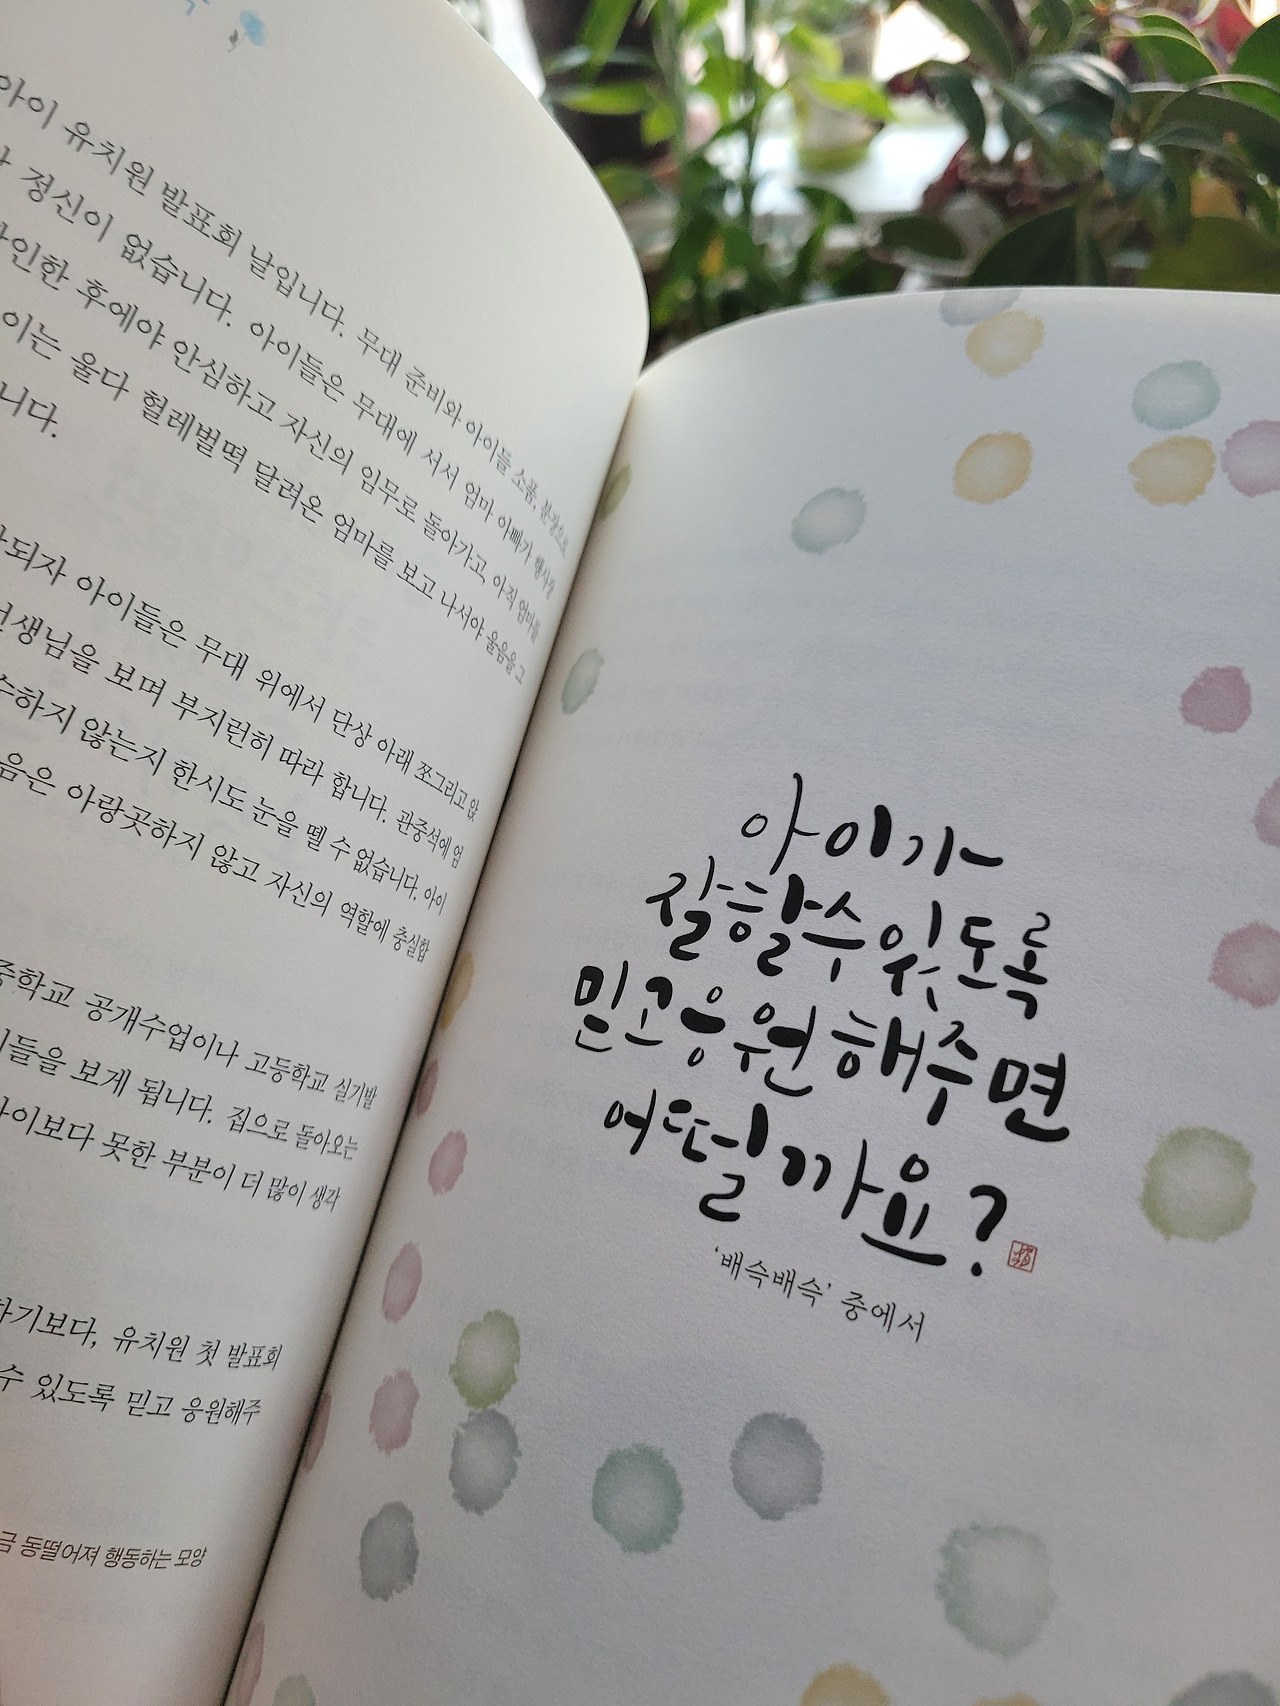 아이 유치원 발표회 날입니다. 무대 준비와 아이들 소품, 분장으로
정신이 없습니다. 아이들은 무대에 서서 엄마 아빠가 행사장
후에야 안심하고 자신의 임무로 돌아가고, 아직 엄마를
이는 울다 헐레벌떡 달려온 엄마를 보고 나서야 울음을 그
니다.
되자 아이들은 무대 위에서 단상 아래 쪼그리고 앉
선생님을 보며 부지런히 따라 합니다. 관중석에 엄
수하지 않는지 한시도 눈을 뗄 수 없습니다. 아이
음은 아랑곳하지 않고 자신의 역할에 충실합
중학교 공개수업이나 고등학교 실기발
이들을 보게 됩니다. 집으로 돌아오는
아이보다 못한 부분이 더 많이 생각
하기보다, 유치원 첫 발표회
수 있도록 믿고 응원해주
금 동떨어져 행동하는 모양
아이가
잘할수있도록
믿고응원해주면
어떨까요?
'배슥배슥' 중에서